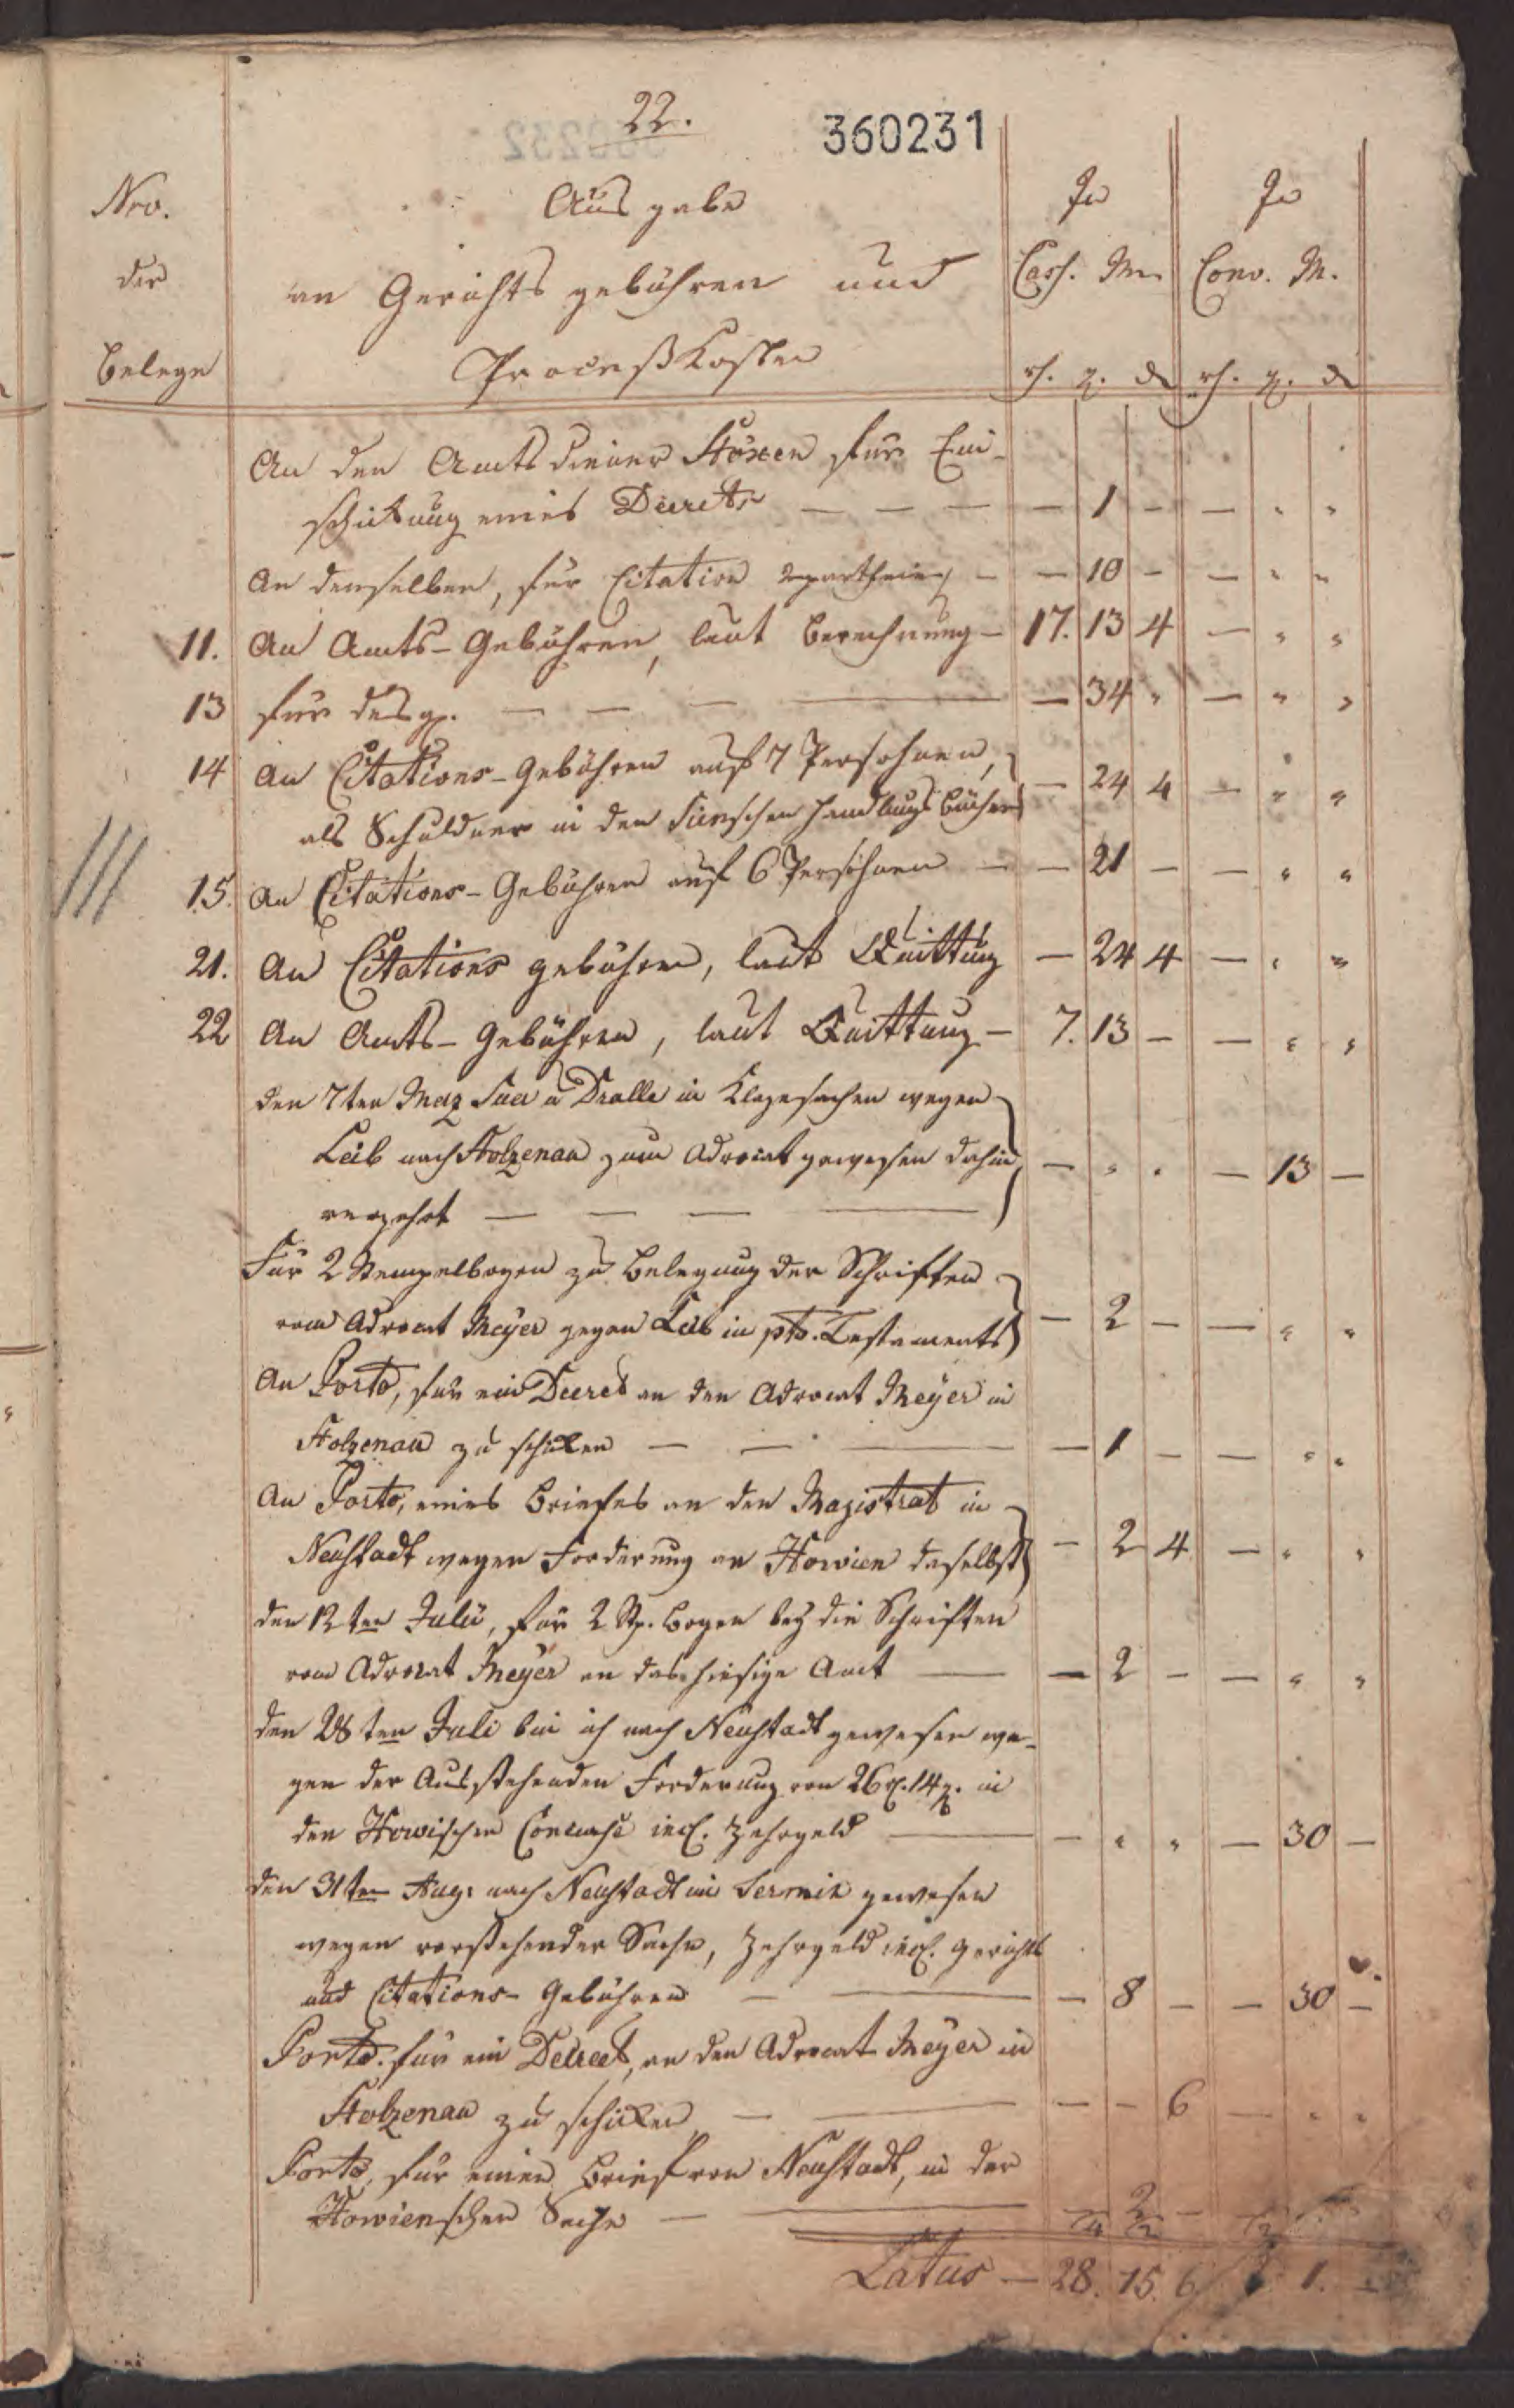 22.
360231
Nro. der Belege
Ausgabe
an Gerichts gebühren und
Proceßkosten
In Cass. M. In Conv. M.
rh. g. d rh. g. d
An den Amtsdiener Stöxen für Ein-
schickung eines Decrets — — — — 1 — —
An denselben, für Citation — — 10 — —
11. An Amts-Gebühren, laut Berechnung — 17. 13 4 —
13 für desgl. — — — — — 34 —
14 An Citations-Gebühren auf 7 Persohnen, — 24 4 —
als Schuldner in den Handlungs Büchern
15. An Citations-Gebühren auf 6 Persohnen — — 21 — —
21. An Citations gebühren, laut Quittung — 24 4 —
22 An Amts-Gebühren, laut Quittung — 7. 13 — —
den 7ten May Dralle in Klagesachen wegen
Leib nach Stolzenau zum Advocat gewesen dahin — — 13 —
verzehrt — — — —
Für 2 Stempelbogen zu Belegung der Schriften
vom Advocat Meyer gegen Leib in pto. Testaments — 2 — —
An Porto, für ein Decret an den Advocat Meyer in
Stolzenau zu schicken — — — — 1 — —
An Porto, eines Briefes an den Magistrat in
Neustadt wegen Forderung an Howien daselbst — 2 4 —
den 12ten Julii, für 2 St. bogen bey die Schriften
vom Advocat Meyer an das hiesige Amt — — 2 — —
den 28ten Juli bin ich nach Neustadt gewesen we-
gen der Ausstehenden Forderung von 26 rh. 14 g. in
den Howischen Concurse incl. Zehrgeld — — — 30 —
den 31ten Aug: nach Neustadt im Termin gewesen
wegen vorstehender Sache, Zehrgeld incl. Gerichts
und Citations-Gebühren — — — 8 — — 30 —
Porto. für ein Decret, an den Advocat Meyer in
Stolzenau zu schicken — — — — 6 —
Porto, für einen Brief von Neustadt, in der
Howienschen Sache — — 2 —
Latus — 28. 15. 6 1. —